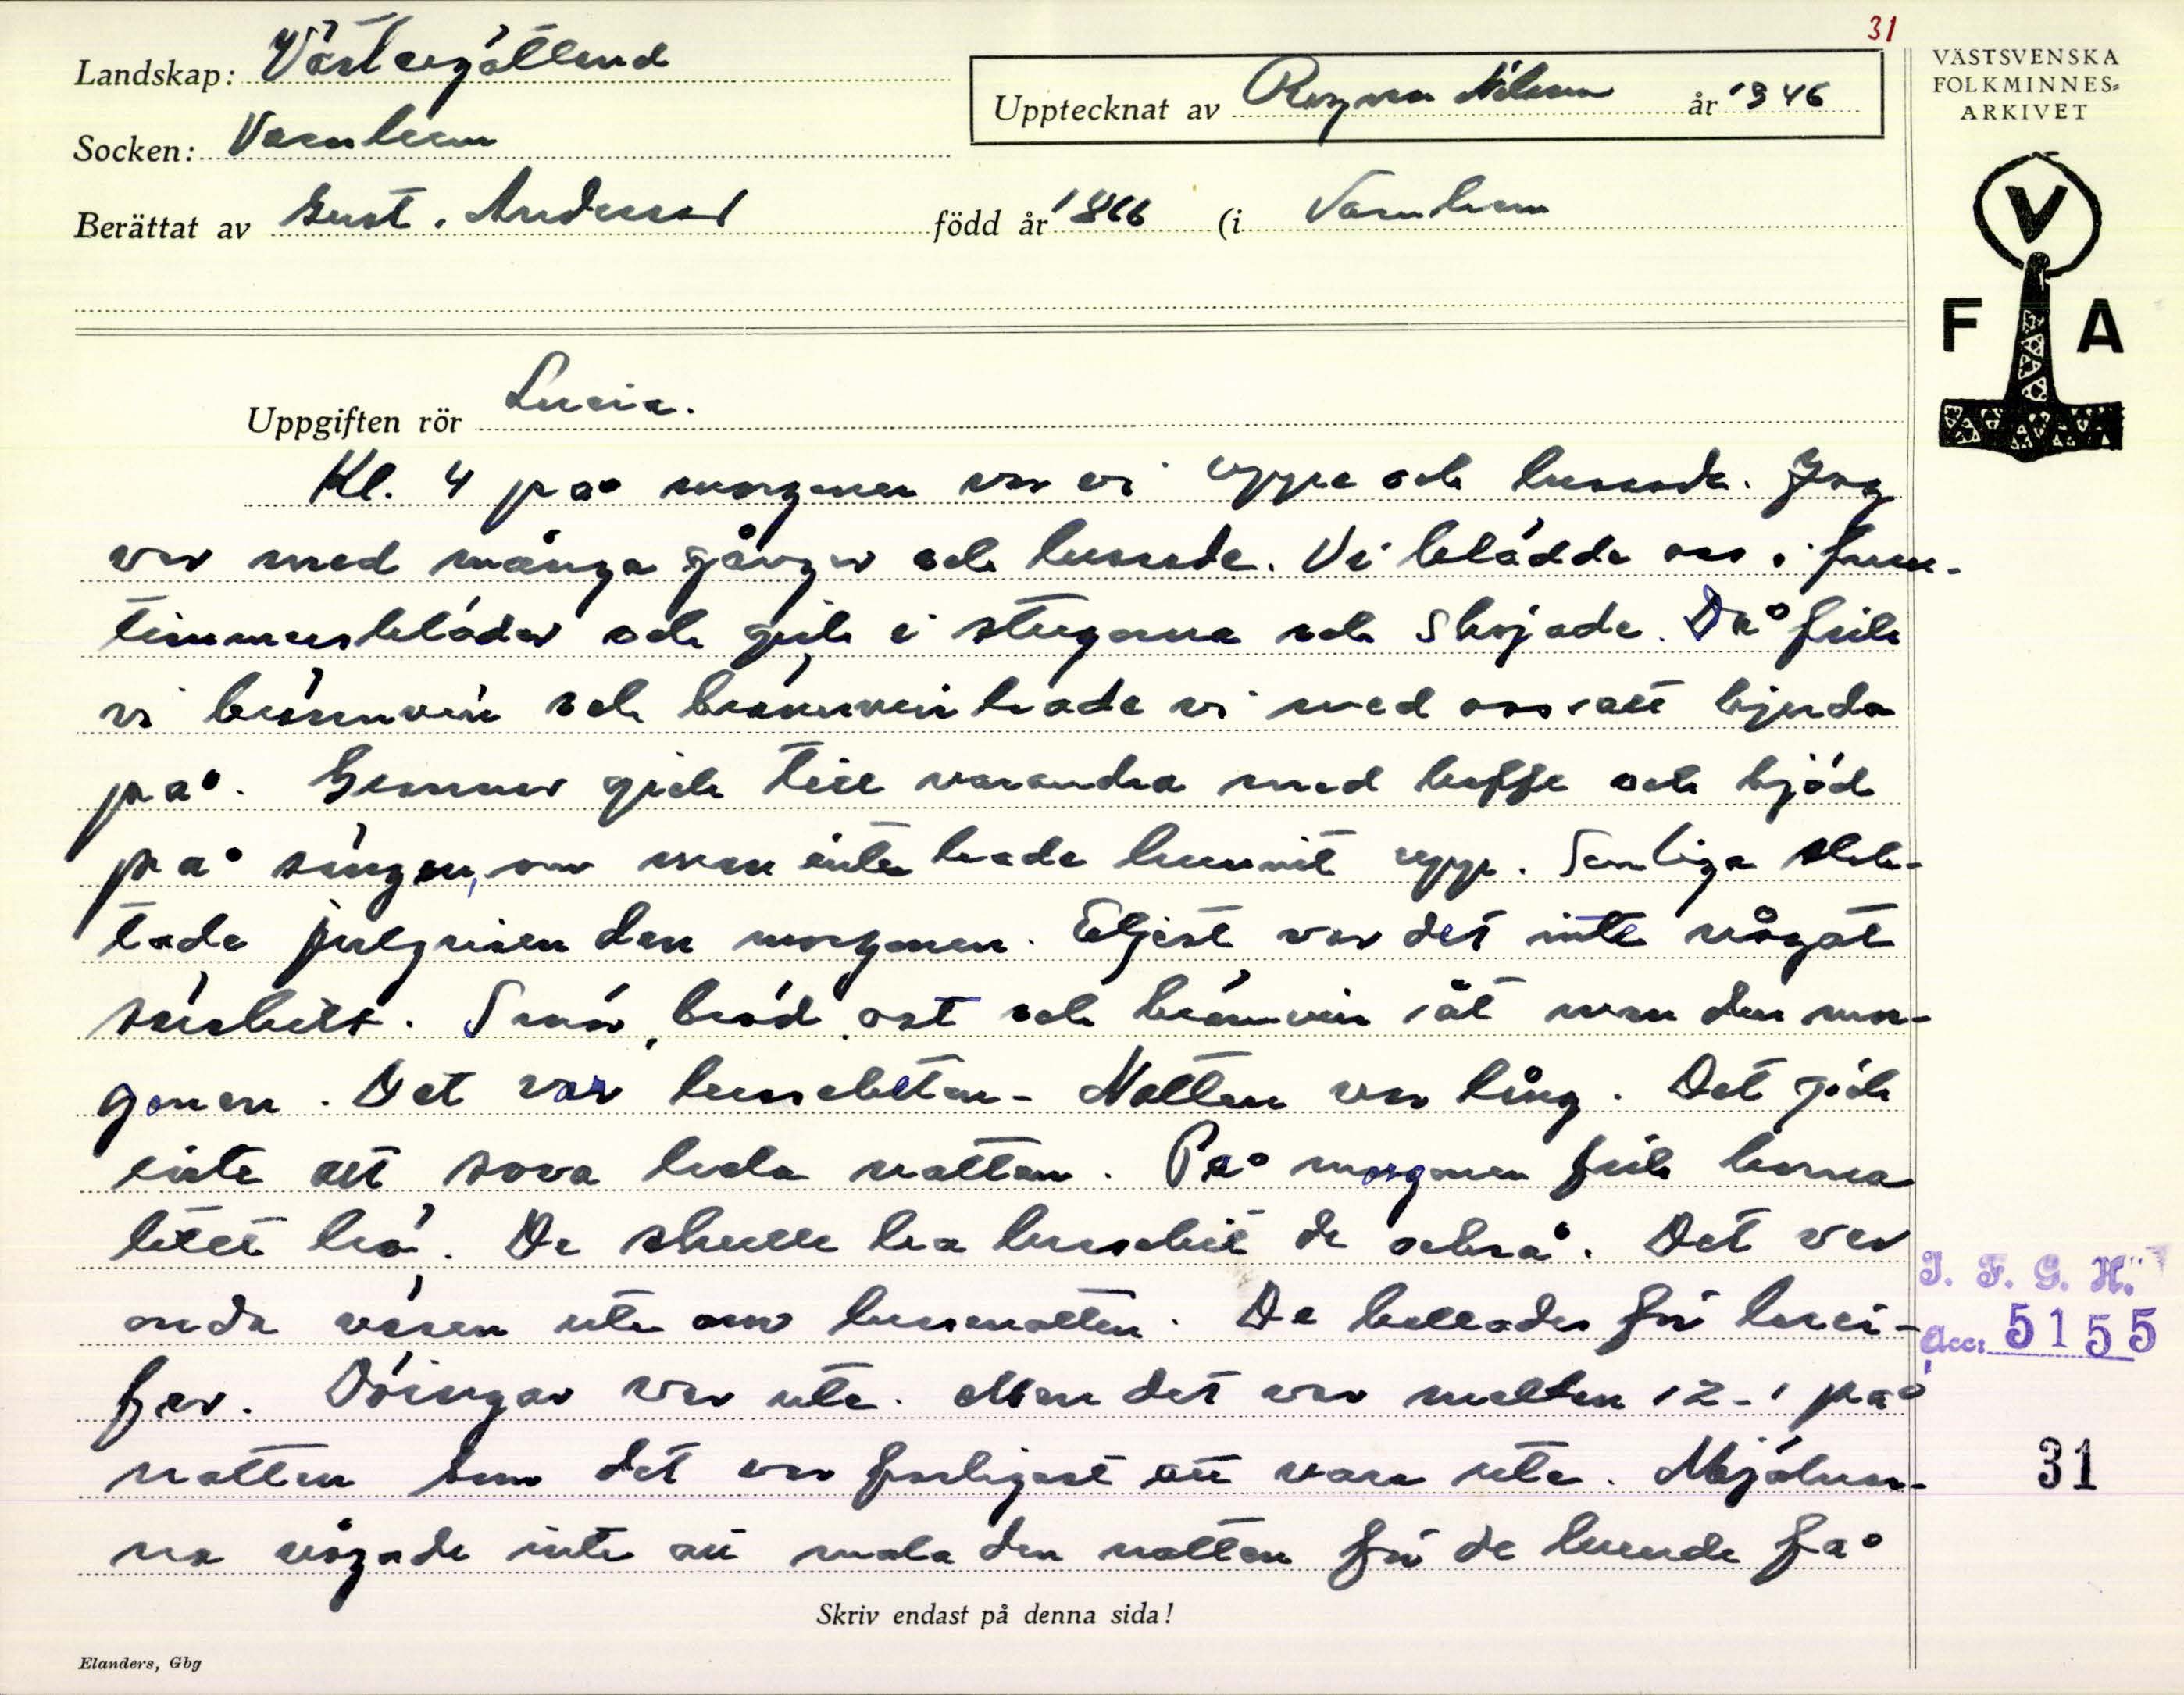 31
Landskap: Västergötland
Upptecknat av Ragnar Nilsson år 1946
VÄSTSVENSKA
FOLKMINNES-
ARKIVET
Socken: Varnhem
Berättat av Gust. Andersson född år 1866 (i Varnhem
V
F A
Uppgiften rör Lucia.
Kl. 4 på morgonen var vi uppe och lussade. Jag
var med många gånger och lussade. Vi klädde oss i frun-
timmerskläder och gick i stugorna och skojade. Då fick
vi brännvin och brännvin hade vi med oss att bjuda
på. Somme gick till varandra med kaffe och bjöd
på sängen, om man inte hade hunnit upp. Somliga slak-
tade julgrisen den morgonen. Eljest var det inte något
särskilt. Smör, bröd, ost och brännvin åt man den mor-
gonen. Det var lussebiten. Natten var lång. Det gick
inte att sova hela natten. På morgonen fick korna
litet hö. De skulle ha lussebit de också. Det var
onda väsen ute om lussenatten. De kallades för luci-
fer. Döingar var ute. Men det var mellan 12-1 på
natten som det var farligast att vara ute. Mjölnar-
na vågade inte att mala den natten för de kunde få
I. F. G. H.
Acc: 5155
31
Skriv endast på denna sida!
Elanders, Gbg